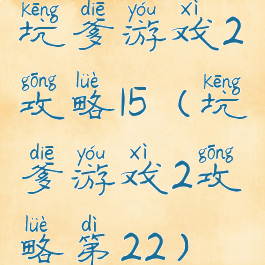 kēng diē yóu xì
坑爹游戏2
gōng lüè kēng
攻略15（坑
diē yóu xì gōng
爹游戏2攻
lüè dì
略第22）